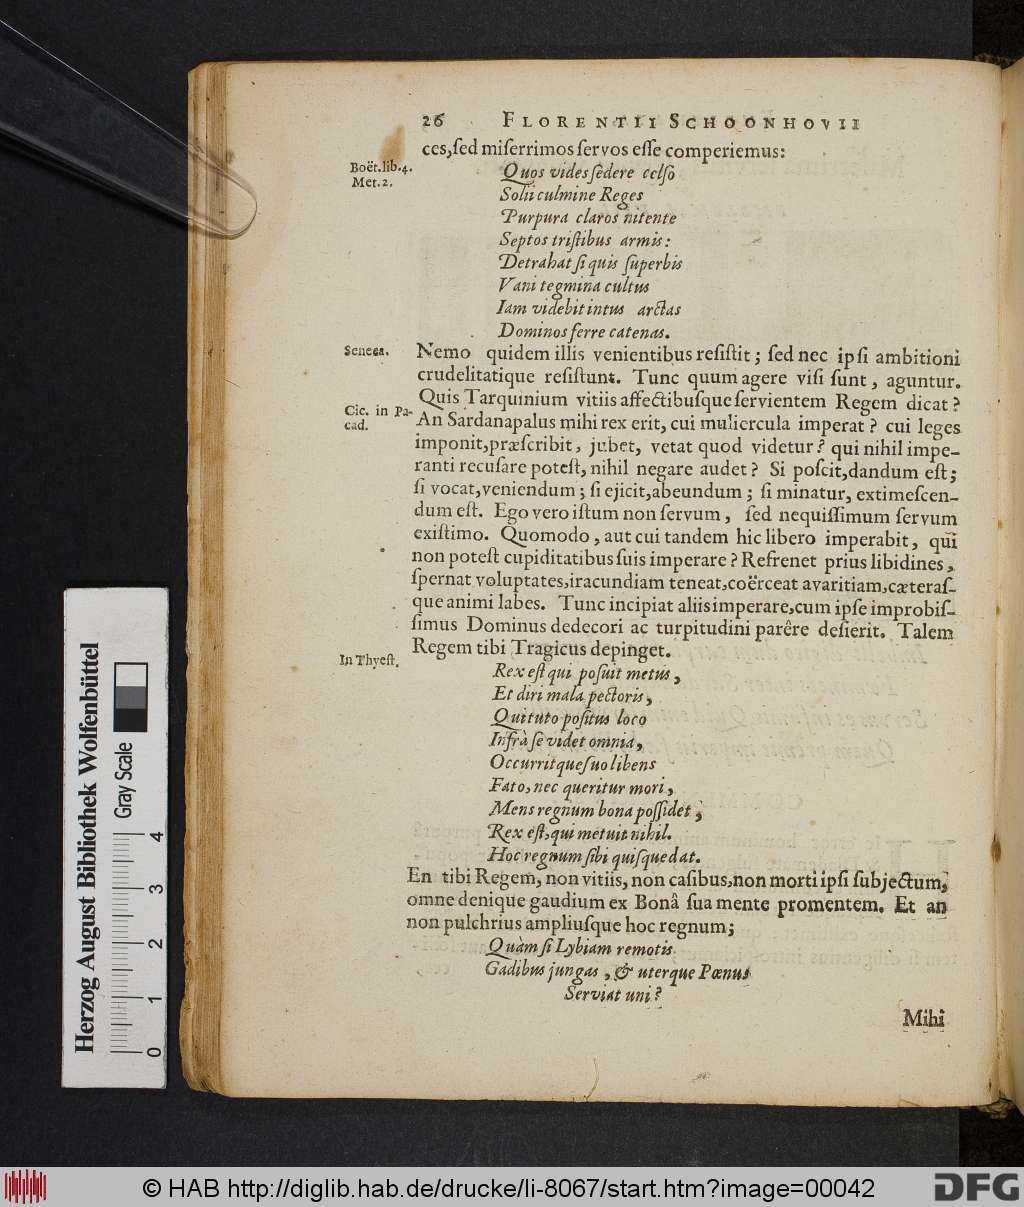 26 FLORENTII SCHOONHOVII
ces, sed miserrimos servos esse comperiemus:
Boët. lib. 4.
Met. 2.
Quos vides sedere celso
Solii culmine Reges
Purpura claros nitente
Septos tristibus armis:
Detrahat si quis superbis
Vani tegmina cultus
Iam videbit intus arctas
Dominos ferre catenas.
Seneca.
Nemo quidem illis venientibus resistit; sed nec ipsi ambitioni
crudelitatique resistunt. Tunc quum agere visi sunt, aguntur.
Quis Tarquinium vitiis affectibusque servientem Regem dicat?
Cic. in Pa-
cad.
An Sardanapalus mihi rex erit, cui muliercula imperat? cui leges
imponit, præscribit, jubet, vetat quod videtur? qui nihil impe-
ranti recusare potest, nihil negare audet? Si poscit, dandum est;
si vocat, veniendum; si ejicit, abeundum; si minatur, extimescen-
dum est. Ego vero istum non servum, sed nequissimum servum
existimo. Quomodo, aut cui tandem hic libero imperabit, qui
non potest cupiditatibus suis imperare? Refrenet prius libidines,
spernat voluptates, iracundiam teneat, coërceat avaritiam, cæteras-
que animi labes. Tunc incipiat aliis imperare, cum ipse improbis-
simus Dominus dedecori ac turpitudini parêre desierit. Talem
Regem tibi Tragicus depinget.
In Thyest.
Rex est qui posuit metus,
Et diri mala pectoris,
Qui tuto positus loco
Infrà se videt omnia,
Occurritque suo libens
Fato, nec queritur mori,
Mens regnum bona possidet;
Rex est, qui metuit nihil.
Hoc regnum sibi quisque dat.
En tibi Regem, non vitiis, non casibus, non morti ipsi subjectum,
omne denique gaudium ex Bonâ sua mente promentem. Et an
non pulchrius ampliusque hoc regnum;
Quàm si Lybiam remotis
Gadibus jungas, & uterque Pœnus
Serviat uni?
Mihi
Herzog August Bibliothek Wolfenbüttel
Gray Scale
0 1 2 3 4
© HAB http://diglib.hab.de/drucke/li-8067/start.htm?image=00042
DFG